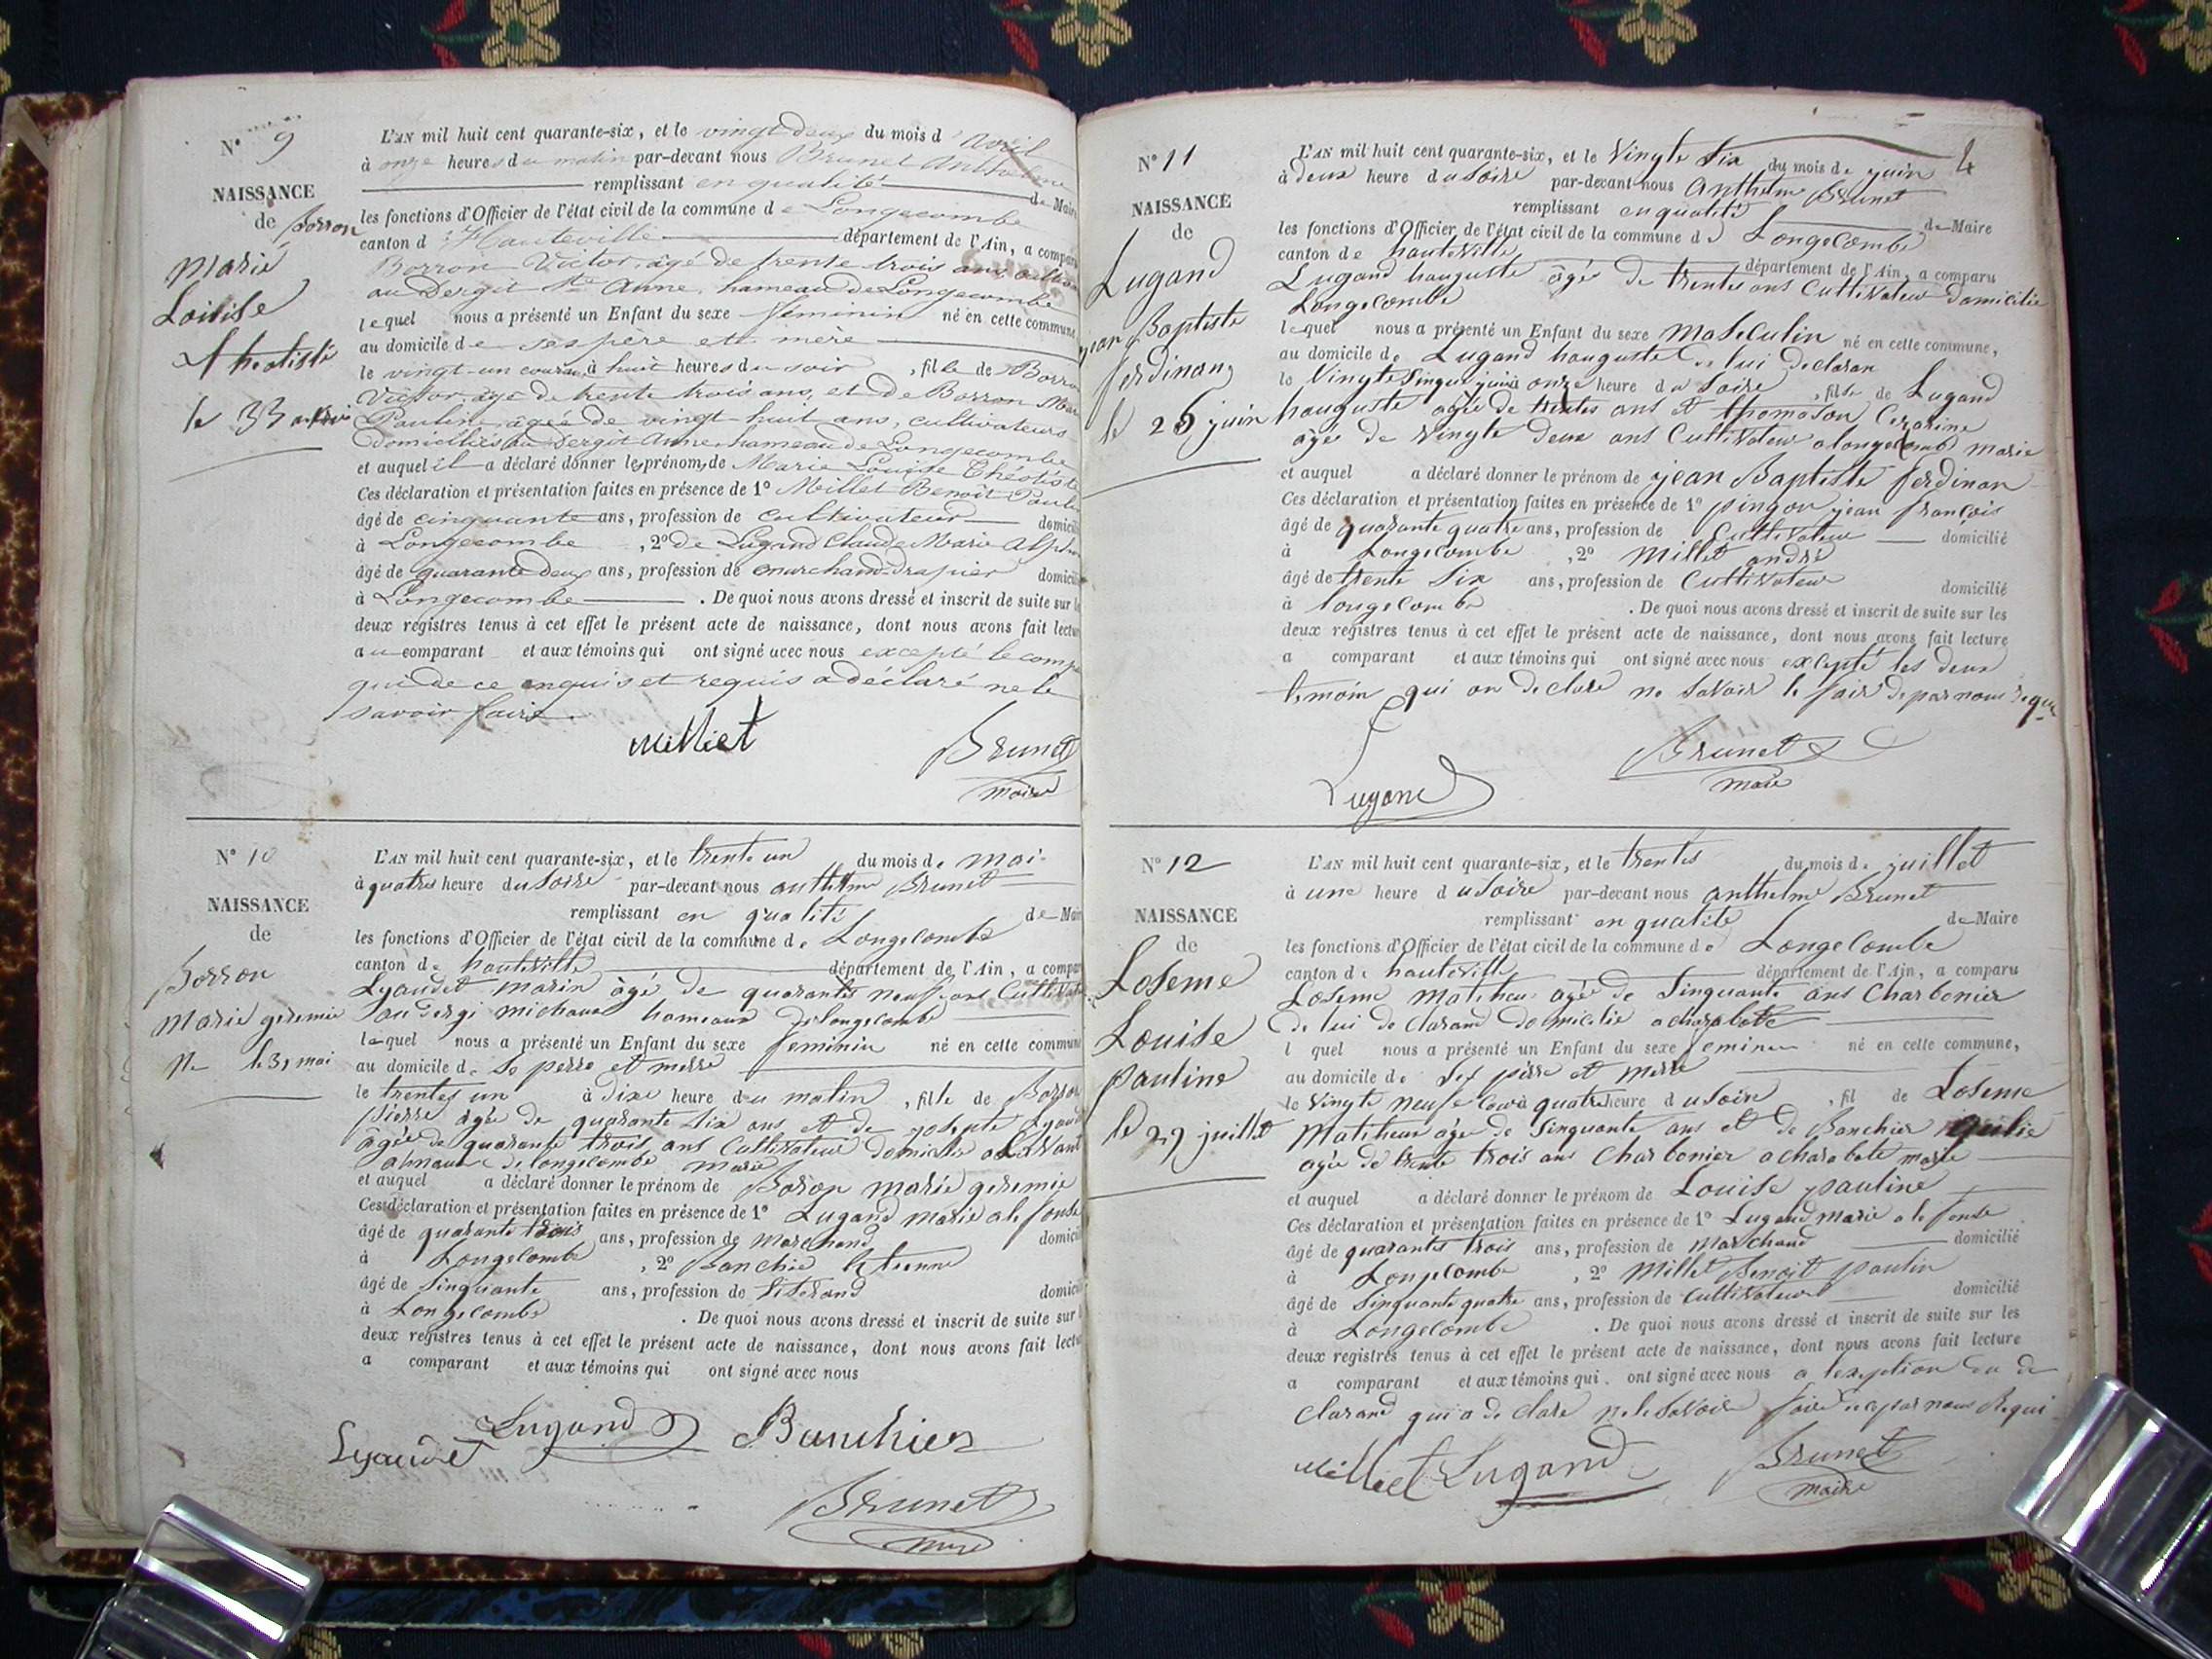 N° 9
NAISSANCE
de Borron
Marie
Loiuise
Théotiste
le 33 avri
L'AN mil huit cent quarante-six, et le vingt deux du mois d'Avril
à onze heures du matin par-devant nous Brunet Anthelme
remplissant en qualité de Maire
les fonctions d'Officier de l'état civil de la commune de Longecombe
canton d'Hauteville département de l'Ain, a comparu
Borron Victor, âgé de trente trois ans cultiva
au Dergit Ste Anne, hameau de Longecombe
lequel nous a présenté un Enfant du sexe féminin né en cette commune,
au domicile de ses père et mère
le vingt-un courant à huit heures du soir, fille de Borron
Victor, âgé de trente trois ans, et de Borron Marie
Pauline, âgée de vingt-huit ans, cultivateurs
domiciliés au Dergit Anne, hameau de Longecombe
et auquel il a déclaré donner les prénom, de Marie Louise Théotiste
Ces déclaration et présentation faites en présence de 1° Milliet Benoît Paulin
âgé de cinquante ans, profession de cultivateur domicilié
à Longecombe, 2° de Lugand Claude Marie Alph
âgé de quarante deux ans, profession de marchand drapier domicilié
à Longecombe. De quoi nous avons dressé et inscrit de suite sur les
deux registres tenus à cet effet le présent acte de naissance, dont nous avons fait lecture
au comparant et aux témoins qui ont signé avec nous excepté le comp
qui de ce enquis et requis a déclaré ne le
savoir faire.
Milliet Brunet
maire
N° 10
NAISSANCE
de
Borron
Marie geremie
Ne le 31 mai
L'AN mil huit cent quarante-six, et le trente un du mois de mai
à quatres heure du Soire par-devant nous anthelme Brunet
remplissant en qualité de Maire
les fonctions d'Officier de l'état civil de la commune de Longecombe
canton de hauteville département de l'Ain, a comparu
Lyaudet marin âgé de quarantes neuf ans Cultivate
au Dergi michaux hameaux de longecombe
lequel nous a présenté un Enfant du sexe feminin né en cette commune
au domicile de So perre et merre
le trentes un à dixe heure du matin, fille de Borron
pierre agée de quarante Six ans et de josepte Lyaud
âgée de quarante trois ans Cultivateur domicilie
de longecombe marie
et auquel a déclaré donner le prénom de Boron marie geremie
Ces déclaration et présentation faites en présence de 1° Lugand marie ale fonse
âgé de quarante trois ans, profession de marchand domicilié
à Longecombe, 2° Banchie Etienne
âgé de Sinquante ans, profession de domicilié
à Longecombe. De quoi nous avons dressé et inscrit de suite sur les
deux registres tenus à cet effet le présent acte de naissance, dont nous avons fait lecture
a comparant et aux témoins qui ont signé avec nous
Lyaudet Lugand Banchier
Brunet
maire
4
N° 11
NAISSANCE
de
Lugand
jean Baptiste
ferdinand
le 26 juin
L'AN mil huit cent quarante-six, et le Vingte Six du mois de juin
à deux heure du Soire par-devant nous Anthelme Brunet
remplissant en qualité de Maire
les fonctions d'Officier de l'état civil de la commune de Longecombe
canton de hauteville département de l'Ain, a comparu
Lugand hauguste âgé de trentes ans Cultivateur domicilie
Longecombe
lequel nous a présenté un Enfant du sexe Masculin né en cette commune,
au domicile de Lugand hauguste de lui declaran
le Vingte Sinque juin à onze heure du Soire, fils de Lugand
hauguste agée de trentes ans et thomason Cerarine
âgée de Vingte deux ans Cultivateur a longecomb marie
et auquel a déclaré donner le prénom de jean Baptiste ferdinan
Ces déclaration et présentation faites en présence de 1° pingon jean françois
âgé de quarante quatre ans, profession de Cultivateur domicilié
à Longecombe, 2° Millet andré
âgé de trente Six ans, profession de Cultivateur domicilié
à longecombe. De quoi nous avons dressé et inscrit de suite sur les
deux registres tenus à cet effet le présent acte de naissance, dont nous avons fait lecture
a comparant et aux témoins qui ont signé avec nous excepté les deux
temoin qui on declare ne Savoir le fair de par nous requi
Lugand Brunet
maire
N° 12
NAISSANCE
de
Loseme
Louise
pauline
le 29 juillet
L'AN mil huit cent quarante-six, et le trentes du mois de juillet
à une heure du Soire par-devant nous anthelme Brunet
remplissant en qualité de Maire
les fonctions d'Officier de l'état civil de la commune de Longecombe
canton de hauteville département de l'Ain, a comparu
Loseme Matheu agée de Sinquante ans Charbonier
de lui declarand domicilie a charabote
l quel nous a présenté un Enfant du sexe feminin né en cette commune,
au domicile de Ses père et merre
le Vingte neufe cou à quatre heure du Soire, fil de Loseme
Matheux agée de Sinquante ans et de Banchier julie
agée de trente trois ans Charbonier a charabote marie
et auquel a déclaré donner le prénom de Louise pauline
Ces déclaration et présentation faites en présence de 1° Lugand marie ale fonse
âgé de quarantes trois ans, profession de Marchand domicilié
à Longecombe, 2° Millet Benoit paulin
âgé de Sinquante quatre ans, profession de Cultivateur domicilié
à Longecombe. De quoi nous avons dressé et inscrit de suite sur les
deux registres tenus à cet effet le présent acte de naissance, dont nous avons fait lecture
a comparant et aux témoins qui ont signé avec nous a lexeption du de
clarand qui a declare ne le Savoir faire de par nous Requi
Milliet Lugand Brunet
maire